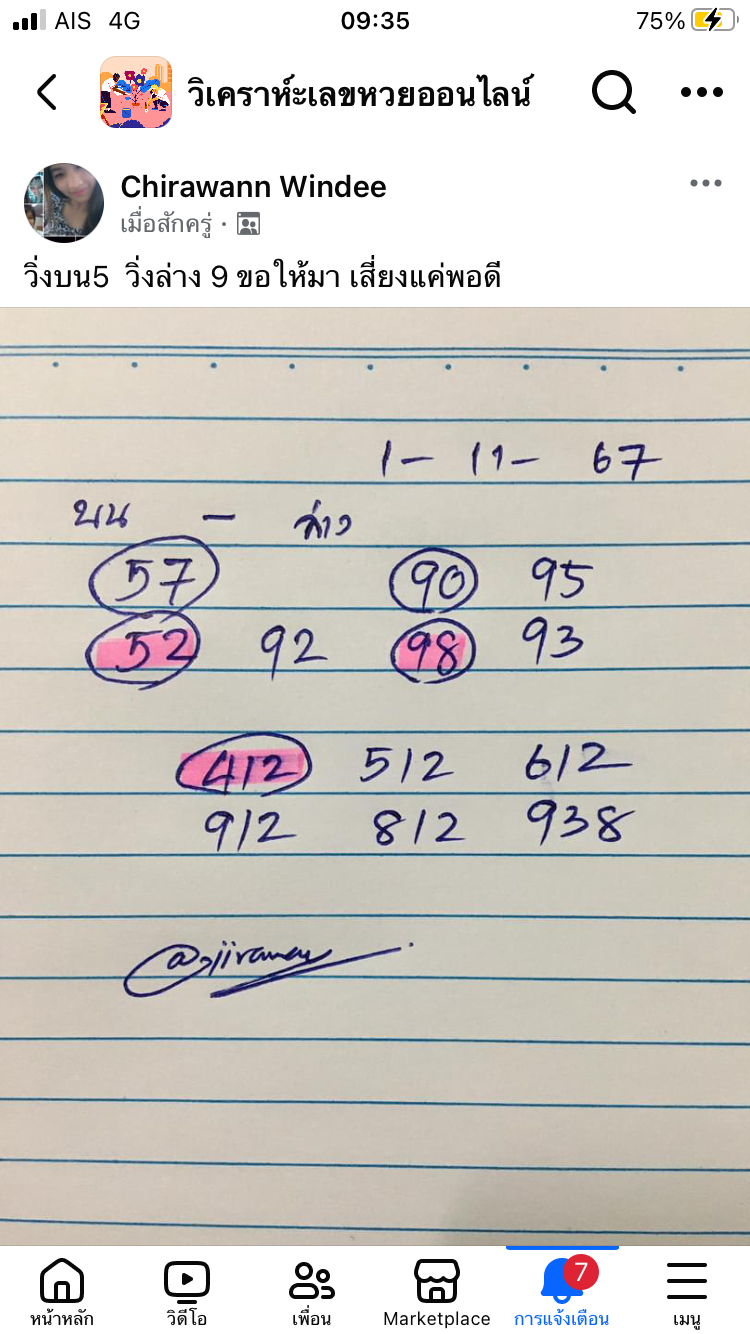 AIS 4G 09:35 75%
วิเคราห์ะเลขหวยออนไลน์
Chirawann Windee
เมื่อสักครู่ ·
วิ่งบน5 วิ่งล่าง 9 ขอให้มา เสี่ยงแค่พอดี
1 - 11 - 67
บน - ล่าง
57 90 95
52 92 98 93
412 512 612
912 812 938
7
หน้าหลัก วิดีโอ เพื่อน Marketplace การแจ้งเตือน เมนู